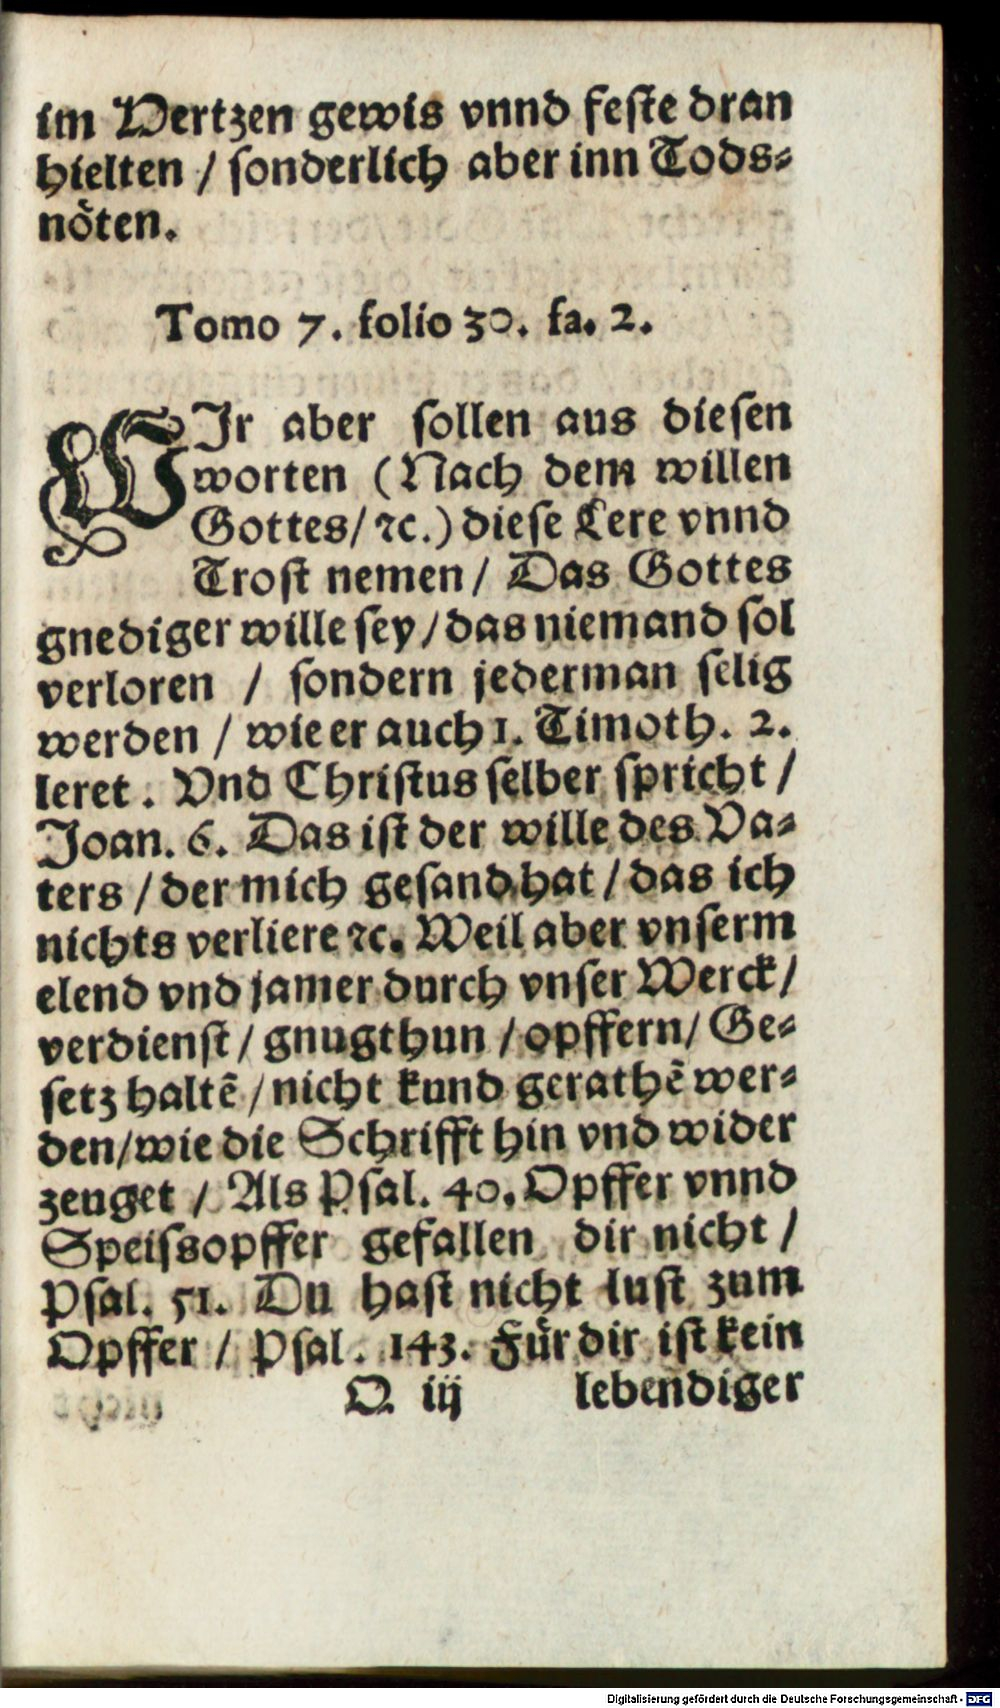 im Hertzen gewis vnnd feste dran
hielten / sonderlich aber inn Tods-
nöten.
Tomo 7. folio 30. fa. 2.
WIr aber sollen aus diesen
worten (Nach dem willen
Gottes/ ꝛc.) diese Lere vnnd
Trost nemen / Das Gottes
gnediger wille sey / das niemand sol
verloren / sondern jederman selig
werden / wie er auch 1. Timoth. 2.
leret. Vnd Christus selber spricht /
Joan. 6. Das ist der wille des Va-
ters / der mich gesand hat / das ich
nichts verliere ꝛc. Weil aber vnserm
elend vnd jamer durch vnser Werck /
verdienst / gnugthun / opffern / Ge-
setz haltē / nicht kund gerathē wer-
den / wie die Schrifft hin vnd wider
zeuget / Als Psal. 40. Opffer vnnd
Speissopffer gefallen dir nicht /
Psal. 51. Du hast nicht lust zum
Opffer / Psal. 143. Für dir ist kein
O iij lebendiger
Digitalisierung gefördert durch die Deutsche Forschungsgemeinschaft - DFG